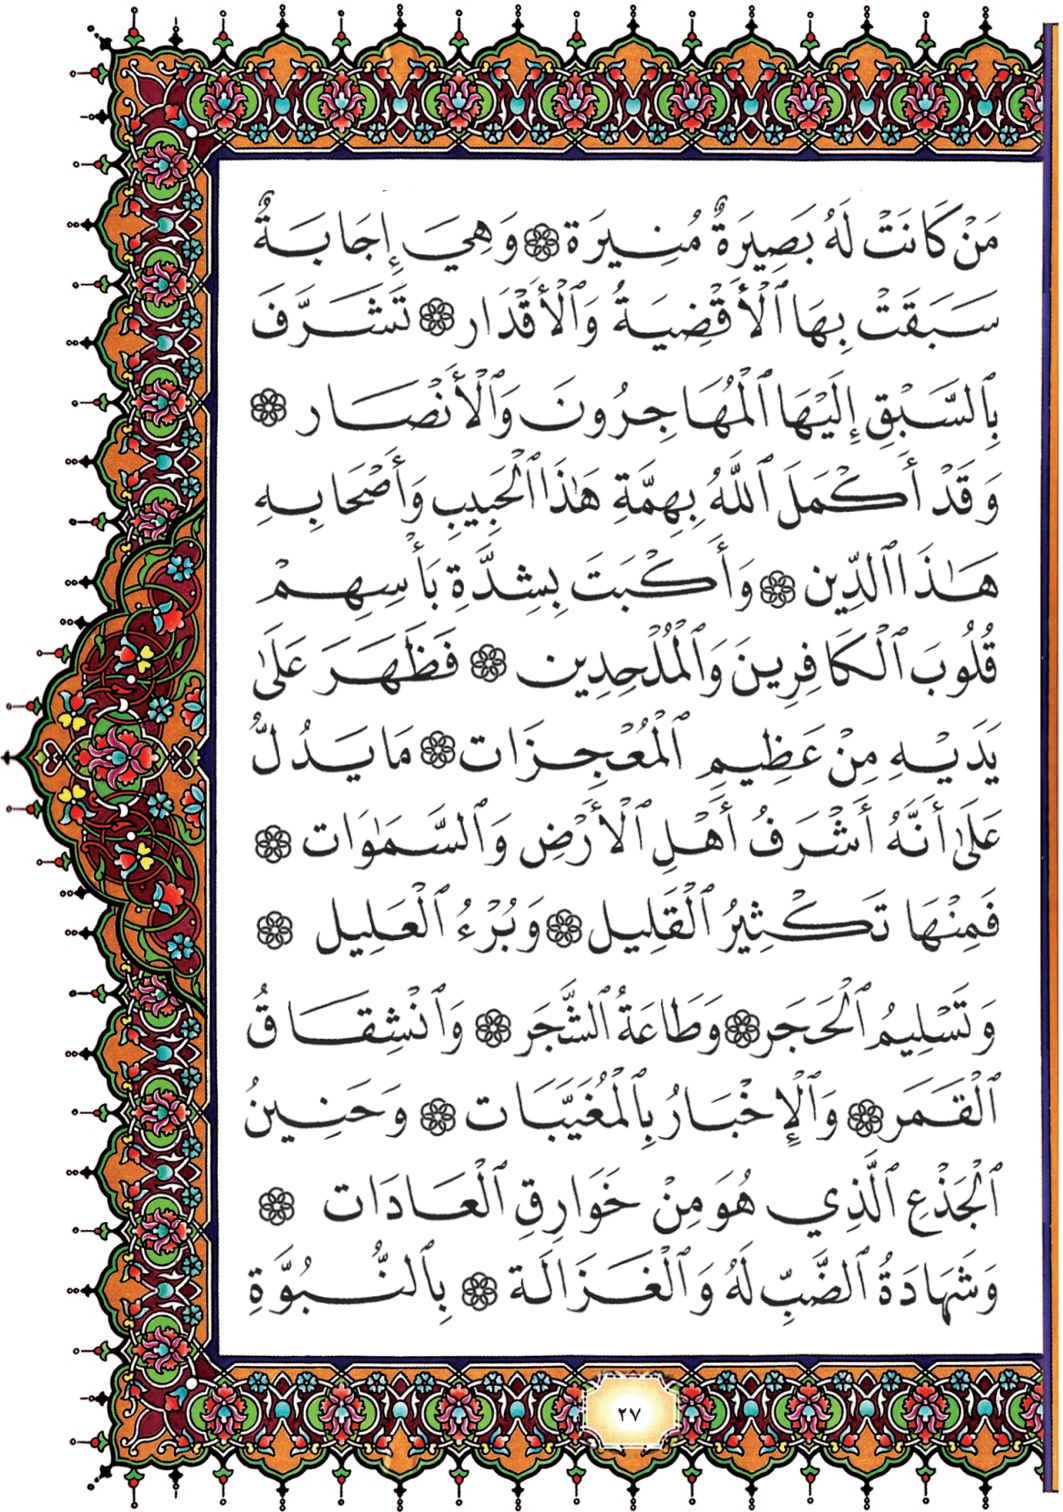 مَنْ كَانَتْ لَهُ بَصِيرَةٌ مُنِيرَة ۞ وَهِيَ إِجَابَةٌ
سَبَقَتْ بِهَا ٱلْأَقْضِيَةُ وَٱلْأَقْدَار ۞ تَشَرَّفَ
بِٱلسَّبْقِ إِلَيْهَا ٱلْمُهَاجِرُونَ وَٱلْأَنْصَار ۞
وَقَدْ أَكْمَلَ ٱللَّهُ بِهِمَّةِ هَٰذَا ٱلْحَبِيبِ وَأَصْحَابِهِ
هَٰذَا ٱلدِّين ۞ وَأَكْبَتَ بِشِدَّةِ بَأْسِهِمْ
قُلُوبَ ٱلْكَافِرِينَ وَٱلْمُلْحِدِين ۞ فَظَهَرَ عَلَىٰ
يَدَيْهِ مِنْ عَظِيمِ ٱلْمُعْجِزَات ۞ مَا يَدُلُّ
عَلَىٰ أَنَّهُ أَشْرَفُ أَهْلِ ٱلْأَرْضِ وَٱلسَّمَٰوَات ۞
فَمِنْهَا تَكْثِيرُ ٱلْقَلِيل ۞ وَبُرْءُ ٱلْعَلِيل ۞
وَتَسْلِيمُ ٱلْحَجَر ۞ وَطَاعَةُ ٱلشَّجَر ۞ وَٱنْشِقَاقُ
ٱلْقَمَر ۞ وَٱلْإِخْبَارُ بِٱلْمُغَيَّبَات ۞ وَحَنِينُ
ٱلْجَذْعِ ٱلَّذِي هُوَ مِنْ خَوَارِقِ ٱلْعَادَات ۞
وَشَهَادَةُ ٱلضَّبِّ لَهُ وَٱلْغَزَالَة ۞ بِٱلنُّبُوَّةِ
٢٧